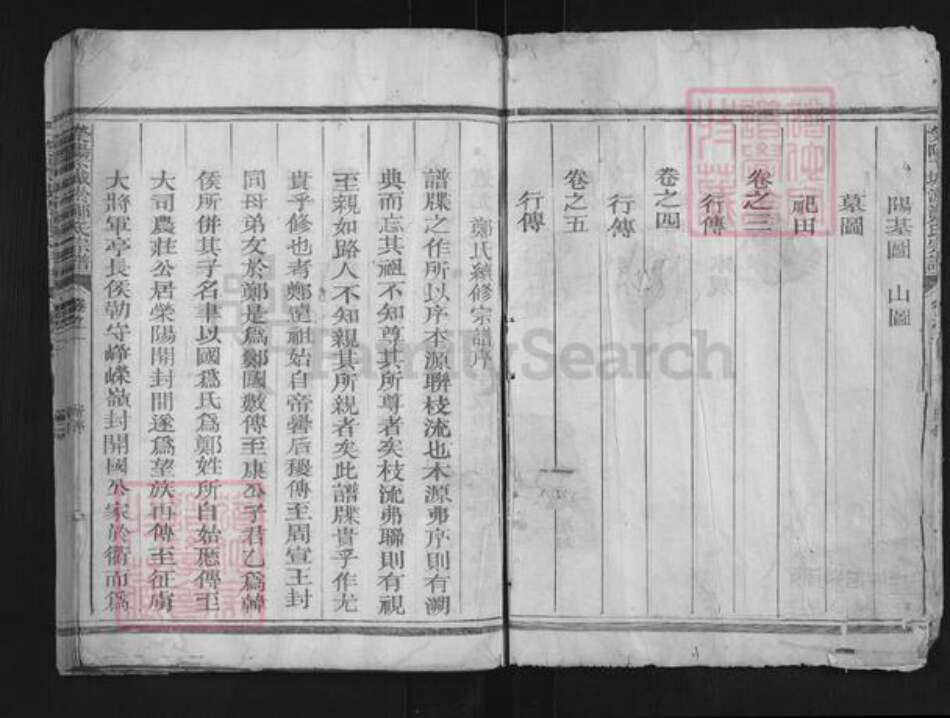 陽基圖 山圖
墓圖
祀田
卷之三
行傳
卷之四
行傳
卷之五
行傳
鄭氏續修宗譜序
譜牒之作所以序本源聯枝流也本源弗序則有溯
典而忘其祖不知尊其所尊者矣枝流弗聯則有視
至親如路人不知親其所親者矣此譜牒貴乎作尤
貴乎修也者鄭遠祖始自帝嚳后稷傳至周宣王封
同母弟友於鄭是為鄭國數傳至康公子君乙為韓
侯所併其子名聿以國為氏為鄭姓所自始歷傳至
大司農莊公居滎陽開封間遂為望族再傳至征虜
大將軍亭長侯勒守崢嶸巔封開國公家於衢而為
FamilySearch